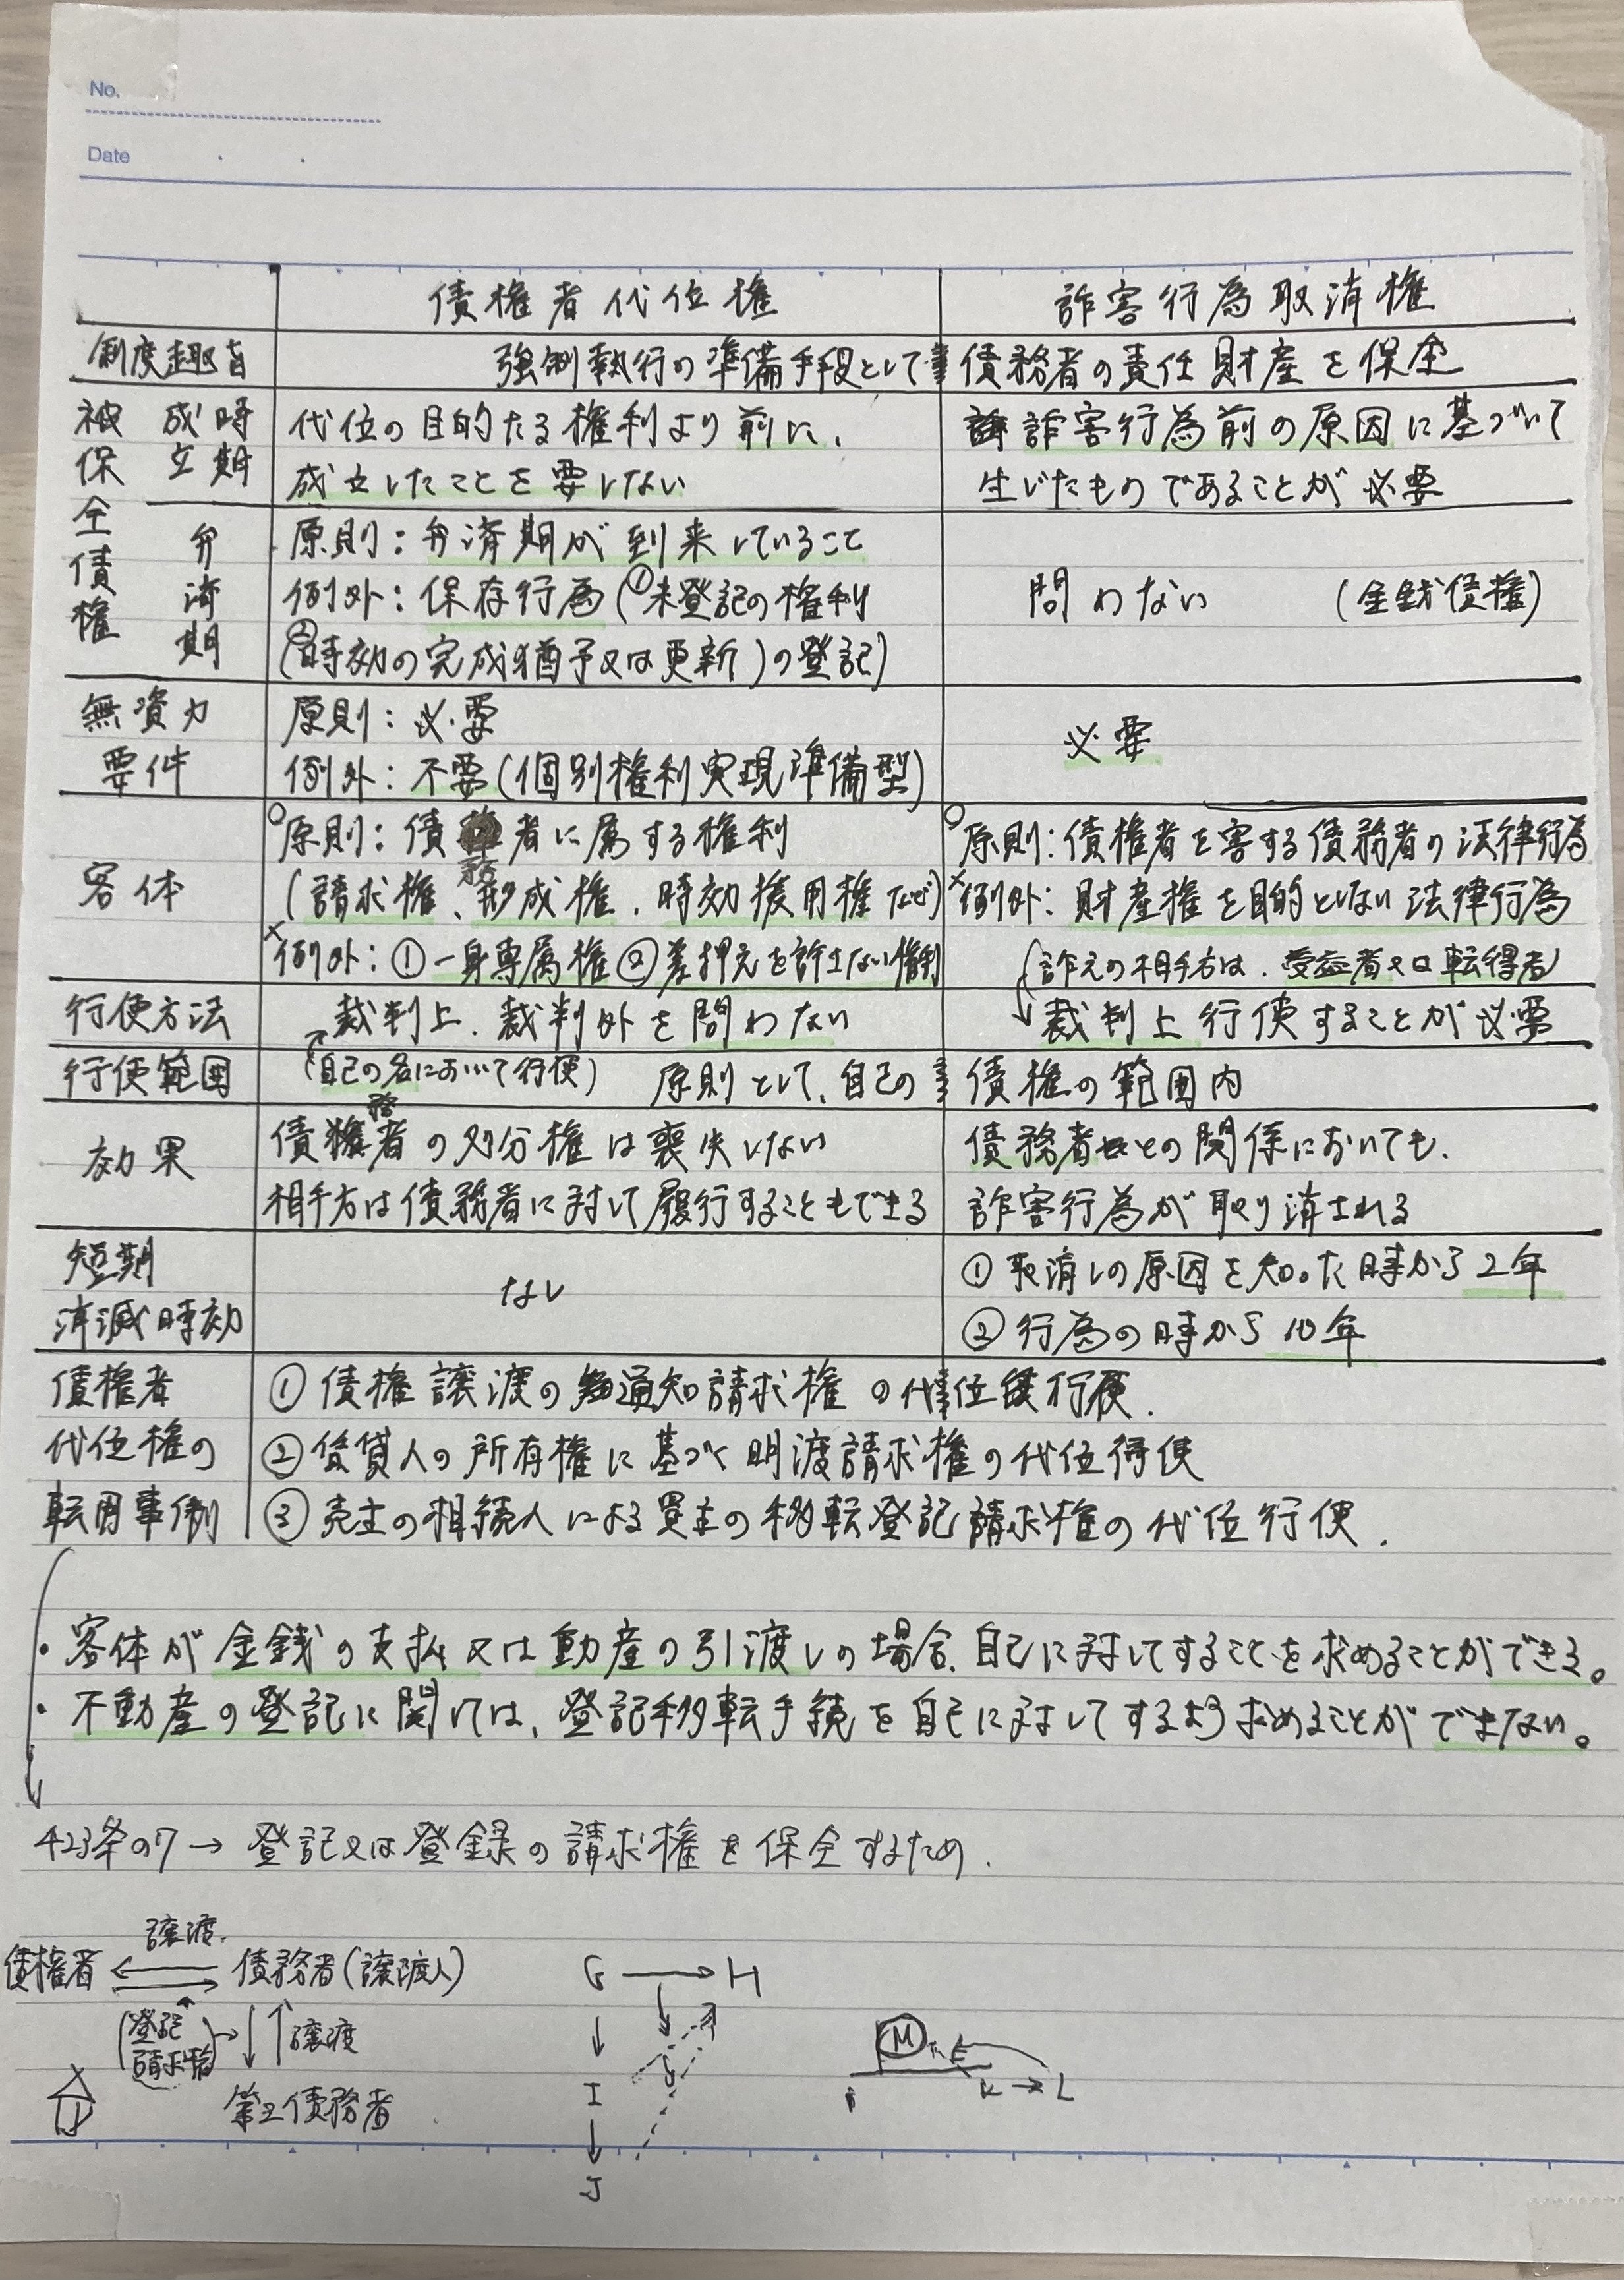 No.
Date
債権者代位権 詐害行為取消権
制度趣旨 強制執行の準備手段として債務者の責任財産を保全
被保全債権 成立時期 代位の目的たる権利より前に、 詐害行為前の原因に基づいて
成立したことを要しない 生じたものであることが必要
弁済期 原則：弁済期が到来していること
例外：保存行為(①未登記の権利 問わない (金銭債権)
(②時効の完成猶予又は更新)の登記)
無資力 原則：必要
要件 例外：不要(個別権利実現準備型) 必要
○原則：債務者に属する権利 ○原則：債権者を害する債務者の法律行為
客体 (請求権、形成権、時効援用権など) ×例外：財産権を目的としない法律行為
×例外：①一身専属権②差押えを許さない権利 (訴えの相手方は、受益者又は転得者)
行使方法 裁判上、裁判外を問わない 裁判上行使することが必要
行使範囲 (自己の名において行使) 原則として、自己の債権の範囲内
効果 債務者の処分権は喪失しない 債務者との関係においても、
相手方は債務者に対して履行することもできる 詐害行為が取り消される
短期 なし ①取消しの原因を知った時から2年
消滅時効 ②行為の時から10年
債権者 ①債権譲渡の通知請求権の代位行使.
代位権の ②賃貸人の所有権に基づく明渡請求権の代位行使
転用事例 ③売主の相続人による買主の移転登記請求権の代位行使.
・客体が金銭の支払又は動産の引渡しの場合、自己に対してすることを求めることができる。
・不動産の登記に関しては、登記移転手続を自己に対してするよう求めることができない。
423条の7→登記又は登録の請求権を保全するため.
譲渡.
債権者 債務者(譲渡人) G → H
(登記請求権) 譲渡
第三債務者 I
J
M
K → L